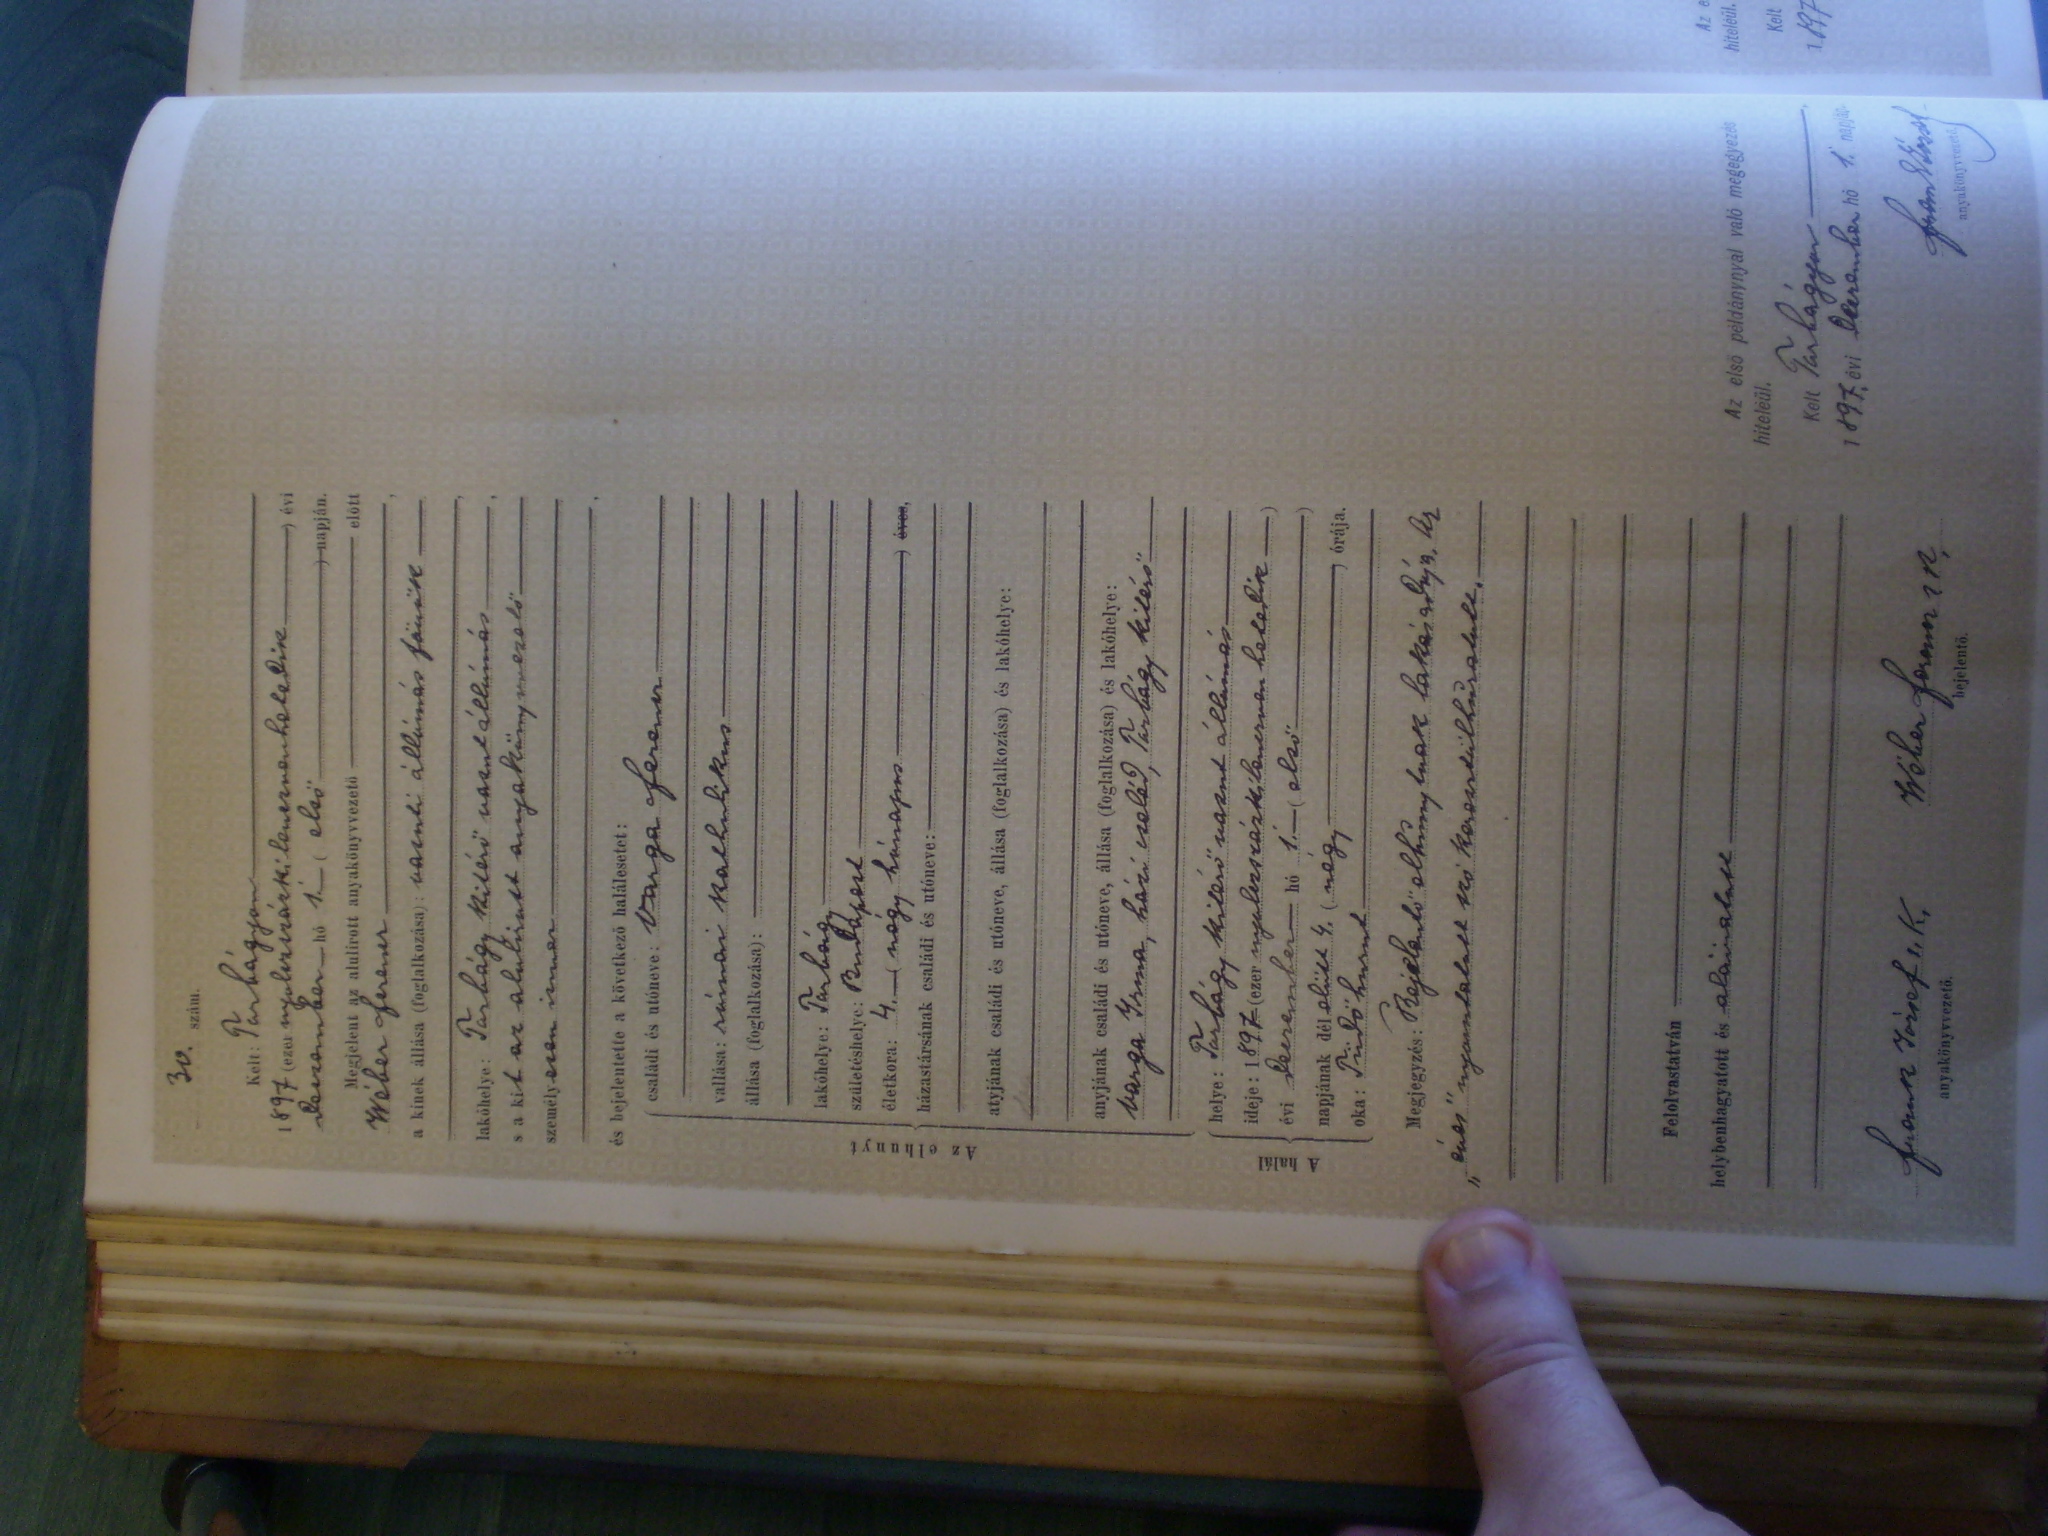 30. szám.
Kelt: Turbágyon
1897 (ezer nyolczszázkilenczvenhetedik) évi
Deczember hó 1. (első) napján.
Megjelent az alulirott anyakönyvezető előtt
Wéber Ferencz,
a kinek állása (foglalkozása): vasuti állomás főnök
lakóhelye: Turbágy kitérő vasut állomás,
s a kit az alulirott anyakönyvvezető
személyesen ismer,
és bejelentette a következő halálesetet:
Az elhunyt
családi és utóneve: Varga Ferencz
vallása: római katholikus
állása (foglalkozása):
lakóhelye: Turbágy
születéshelye: Budapest
életkora: 4. (négy hónapos) éves,
házastársának családi és utóneve:
atyjának családi és utóneve, állása (foglalkozása) és lakóhelye:
anyjának családi és utóneve, állása (foglalkozása) és lakóhelye:
Varga Irma, házi cseléd, Turbágy kitérő
A halál
helye: Turbágy kitérő vasut állomás
ideje: 1897 (ezer nyolczszázkilenczvenhetedik)
évi Deczember hó 1. (első)
napjának dél előtt 4. (négy) órája.
oka: Tüdőhurut
Megjegyzés: Bejelentő elhunytnak lakásadója. Az
„éves" nyomtatott szó keresztülhúzatott.
Felolvastatván
helybenhagyatott és aláiratott
Frank József s. k.
anyakönyvezető.
Wéber Ferencz s. k.
bejelentő.
Az első példánynyal való megegyezés
hiteléül.
Kelt Turbágyon,
1897. évi Deczember hó 1. napján.
Frank József
anyakönyvvezető.
Az e
hiteléül.
Kelt
1897